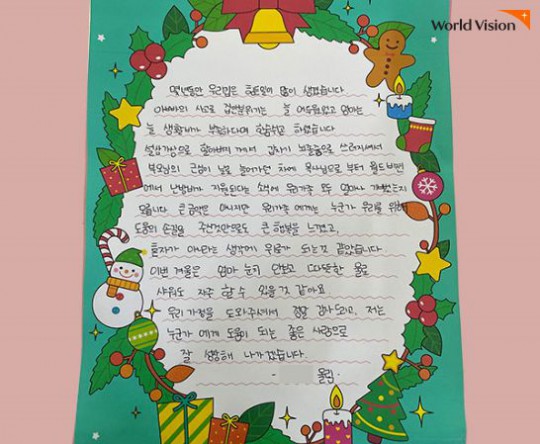 World Vision
몇년동안 우리집은 힘든일이 많이 생겼습니다
아빠의 사고로 집안분위기는 늘 어두웠었고 엄마는
늘 생활비가 부족하다며 한숨쉬고 하였습니다
설상가상으로 할아버지 께서 갑자기 뇌졸중으로 쓰러지셔서
부모님의 근심이 날로 늘어가던 차에 목사님으로 부터 월드비전
에서 난방비가 지원된다는 소식에 우리가족 모두 얼마나 기뻤는지
모릅니다 큰 금액은 아니지만 우리가족 에게는 누군가 우리를 위해
도움의 손길을 주신것만으로도 큰 행복을 느꼈고,
혼자가 아니라는 생각에 위로가 되는것 같았습니다
이번 겨울은 엄마 눈치 안보고 따뜻한 물로
샤워도 자주 할 수 있을 것 같아요
우리 가정을 도와주셔서 정말 감사드리고, 저는
누군가 에게 도움이 되는 좋은 사람으로
잘 성장해 나가겠습니다
- 올림 -